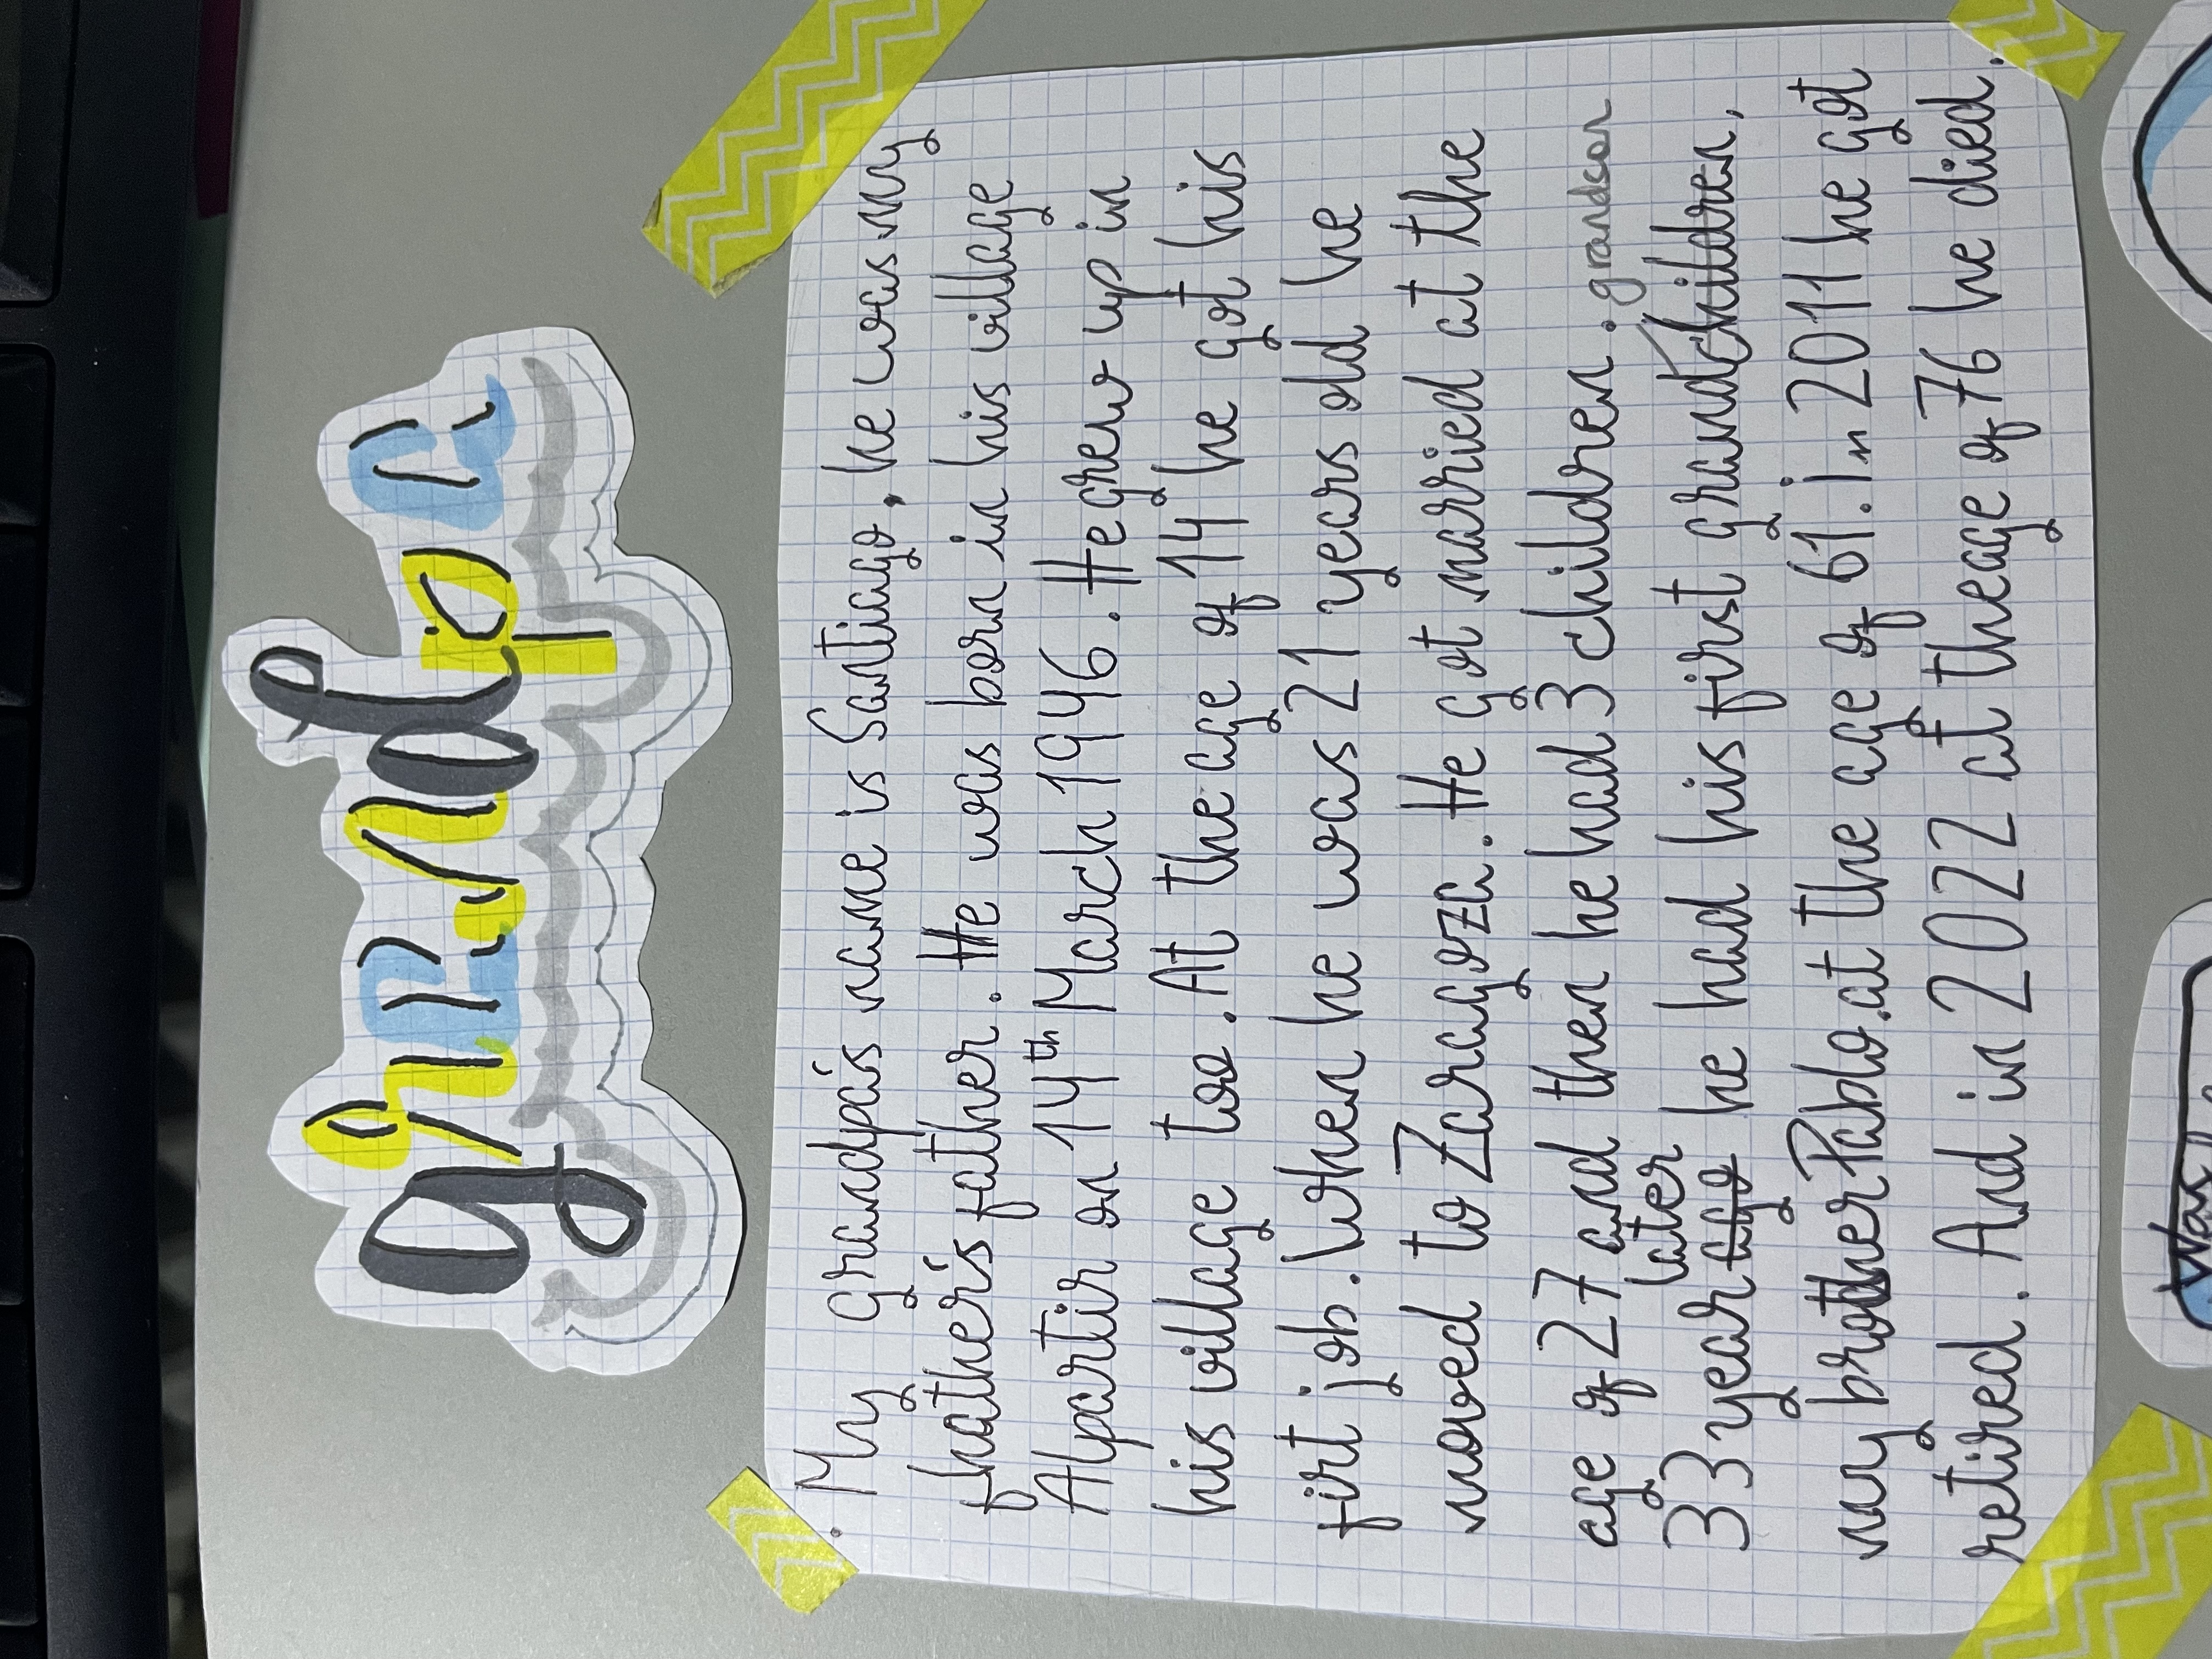 grandpa
. My grandpa's name is Santiago, he was my
father's father. He was born in his village
Alpartir on 14th March 1946. He grew up in
his village too. At the age of 14 he got his
firt job. When he was 21 years old he
moved to Zaragoza. He got married at the
age of 27 and then he had 3 children.
grandson
later
33 year ago he had his first grandchildren,
my brother Pablo.at the age of 61. In 2011 he got
retired. And in 2022 at the age of 76 he died.